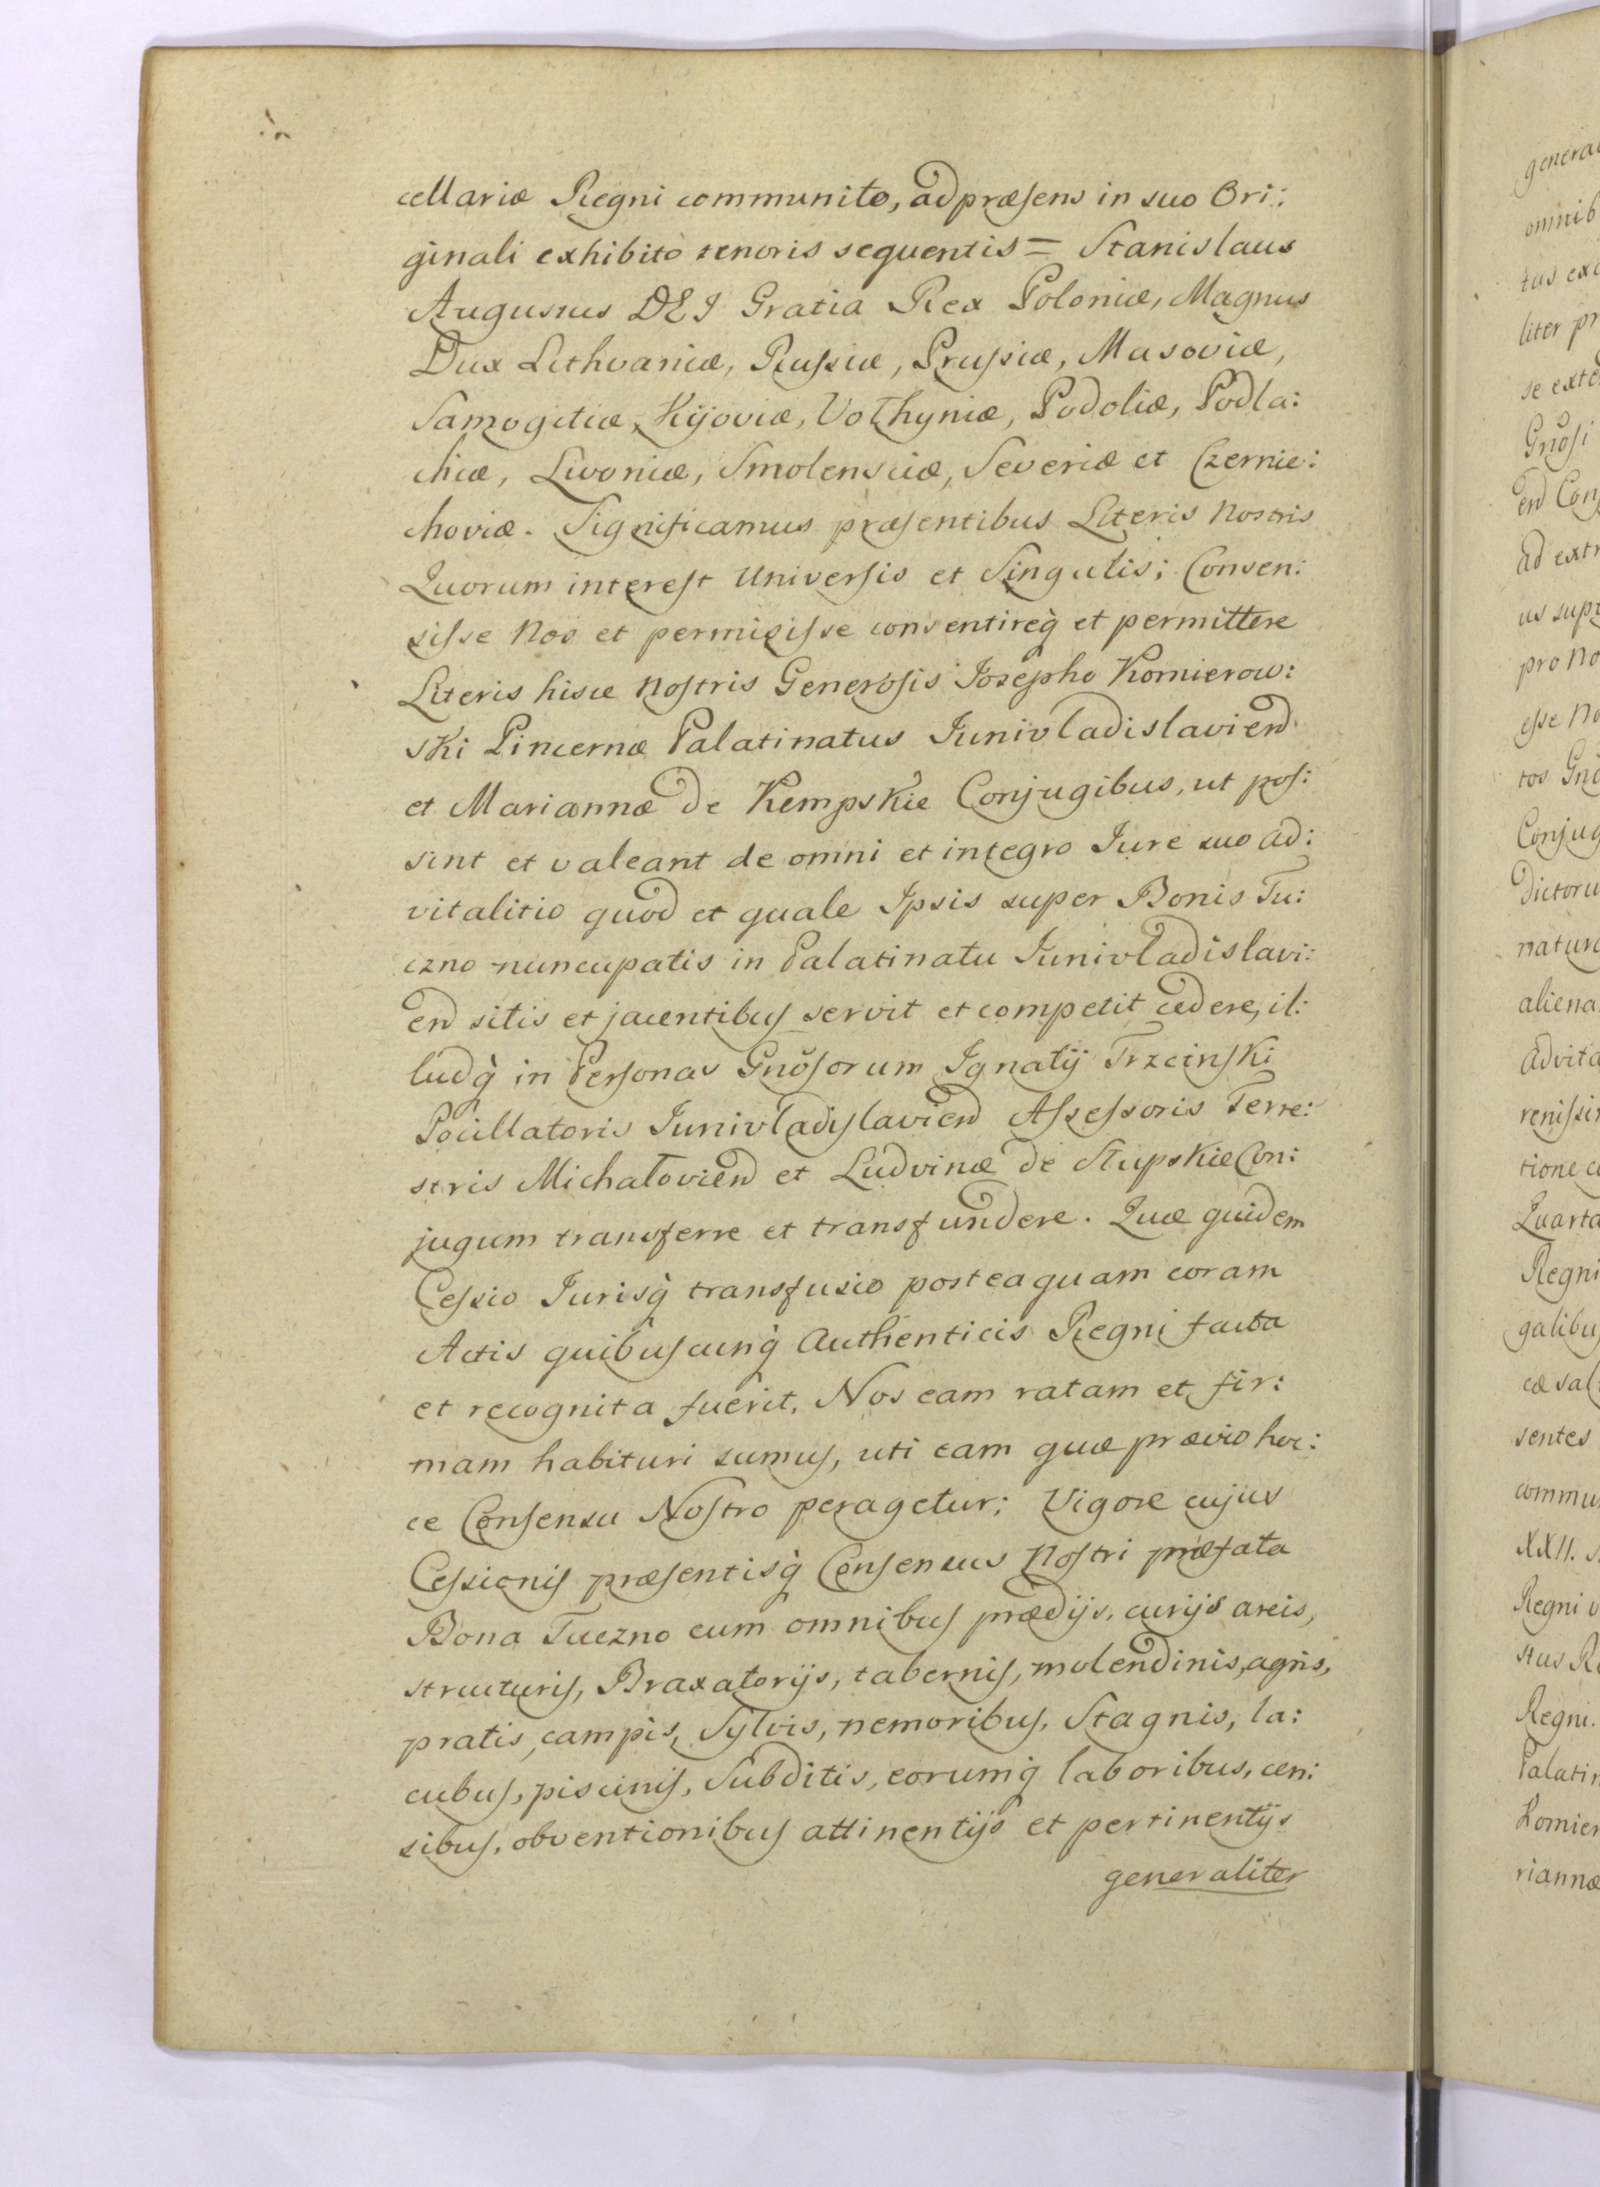 cellariæ Regni communito, ad præsens in suo Ori:
ginali exhibito tenoris sequentis = Stanislaus
Augustus DEI Gratia Rex Poloniæ, Magnus
Dux Lithvaniæ, Russiæ, Prussiæ, Masoviæ,
Samogitiæ, Kijoviæ, Volhyniæ, Podoliæ, Podla:
chiæ, Livoniæ, Smolensciæ, Severiæ et Czernie:
choviæ. Significamus præsentibus Literis Nostris
Quorum interest Universis et Singulis; Consen:
sisse Nos et permisisse consentireq̀ et permittere
Literis hisce Nostris Generosis Josepho Komierow:
ski Pincernæ Palatinatus Junivladislaviend
et Mariannæ de Kempskie Conjugibus, ut pos:
sint et valeant de omni et integro Jure suo ad:
vitalitio quod et quale Ipsis super Bonis Tu:
czno nuncupatis in Palatinatu Junivladislavi:
end sitis et jacentibus servit et competit cedere, il:
ludq̀ in Personas Gnõsorum Ignatij Trzcinski
Pocillatoris Junivladislaviend Assessoris Terre:
stris Michałoviend et Ludvinæ de Słupskie Con:
jugum transferre et transfundere. Quæ quidem
Cessio Jurisq̀ transfusio posteaquam coram
Actis quibuscunq̀ Authenticis Regni facta
et recognita fuerit, Nos eam ratam et fir:
mam habituri sumus, uti eam quæ prævio hoc:
ce Consensu Nostro peragetur; Vigore cujus
Cessionis præsentisq̀ Consensus Nostri præfata
Bona Tuczno cum omnibus prædijs, curijs areis,
structuris, Braxatorijs, tabernis, molendinis, agris,
pratis, campis, Sylvis, nemoribus, Stagnis, la:
cubus, piscinis, Subditis, eorumq̀ laboribus, cen:
sibus, obventionibus attinentijs et pertinentijs
generaliter
omnib
liter pr
Conjug
natur
aliena
Quarta
Regni
sentes
commu
XXII.
Regni
Regni.
Palatin
Komier
riannæ